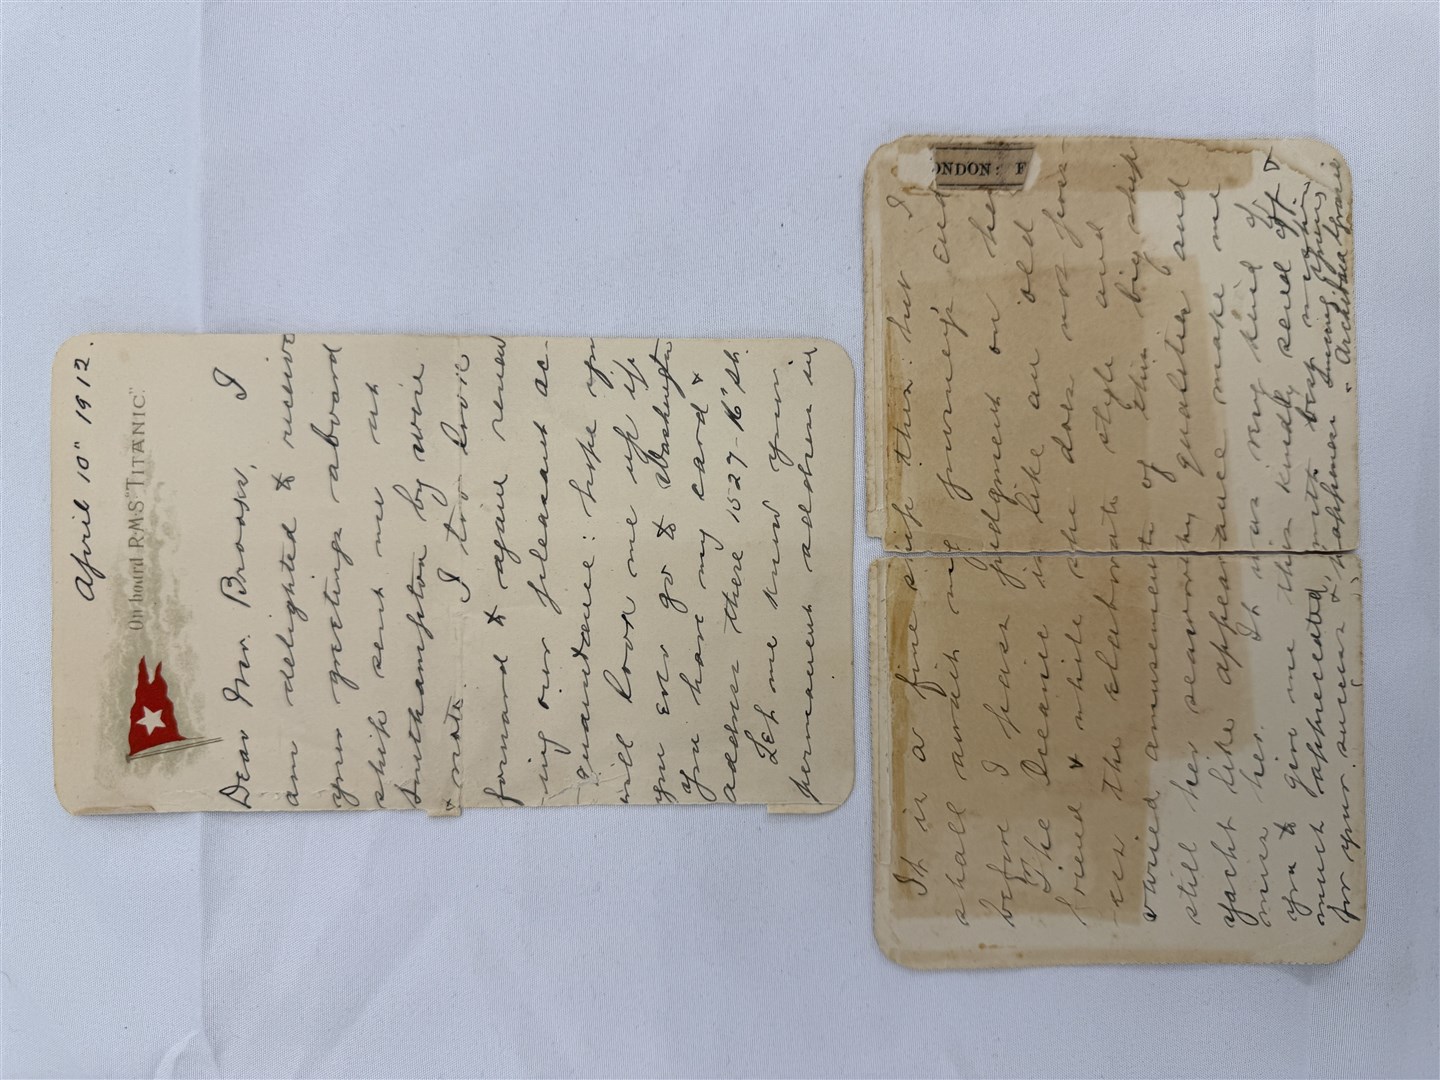 April 10" 1912.
On board R.M.S. "TITANIC".
Dear Mr. Brooks, I
am delighted to receive
your greetings aboard
ship sent me at
Southampton by wire
& note. I too look
forward to again renew
-ing our pleasant ac-
-quaintance: hope you
will look me up if
you ever go to Washington
You have my card &
address there 1527-16" St.
Let me know your
permanent address in
ONDON: F
It is a fine ship this: but I
shall await my journey's end
before I pass judgment on her
The Oceanic is like an old
friend & while she does not poss-
-ess the elaborate style and
varied amusements of this big ship
still her seaworthy qualities and
yacht like appearance make me
miss her. It was very kind of
you to give me this kindly send off &
much appreciated, with best wishes
for your success & happiness Sincy. Yours,
"Archibald Gracie